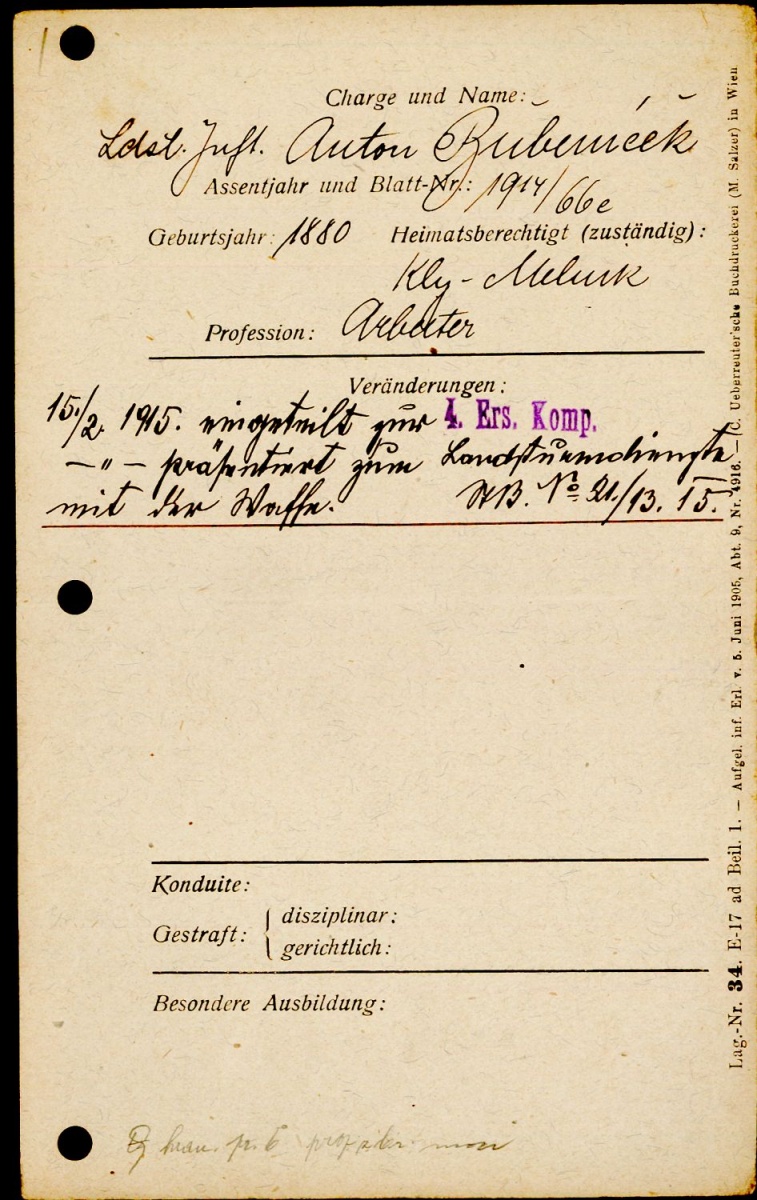 Charge und Name:
Ldst. Inft. Anton
Assentjahr und Blatt-Nr.: 1914/66e
Geburtsjahr: 1880 Heimatsberechtigt (zuständig):
Kly - Melnik
Profession: Arbeiter
Veränderungen:
15./2. 1915. eingeteilt zur 4. Ers. Komp.
—"— präsentiert zum Landsturmdienste
mit der Waffe. No 21./13. 15.
Konduite:
Gestraft: { disziplinar:
gerichtlich:
Besondere Ausbildung:
Lag.-Nr. 34. E-17 ad Beil. 1. — Aufgel. inf. Erl. v. 5. Juni 1905, Abt. 9, Nr. 4916. — (C. Ueberreuter'sche Buchdruckerei (M. Salzer) in Wien